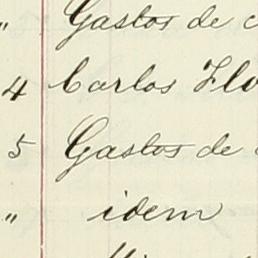 " Gastos de
4 Carlos
5 Gastos de
" idem